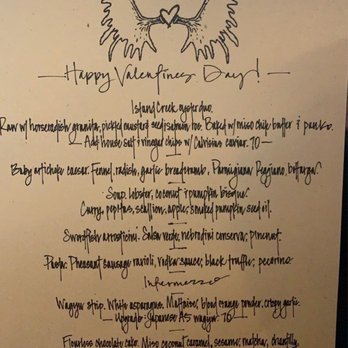 Happy Valentines Day!
Island Creek oyster duo.
Raw w/ horseradish granita, pickled mustard seed & salmon roe. Baked w/ miso chile butter & panko.
Add house salt & vinegar chips w/ Calvisius caviar. 70
Baby artichoke caesar. Fennel, radish, garlic breadcrumb, Parmigiana Reggiano, bottarga.
Soup. lobster, coconut & pumpkin bisque.
Curry, pepitas, scallion, apple, smoked pumpkin seed oil.
Swordfish arrosticini. Salsa verde, nebrodini conserva, pinenut.
Pasta. Pheasant sausage ravioli, vodka sauce, black truffle, pecorino
Intermezzo
Wagyu strip. White asparagus. Maltaise, blood orange powder, crispy garlic.
Upgrade: Japanese A5 wagyu. 76
Flourless chocolate cake. Miso coconut caramel, sesame, matcha, chantilly.